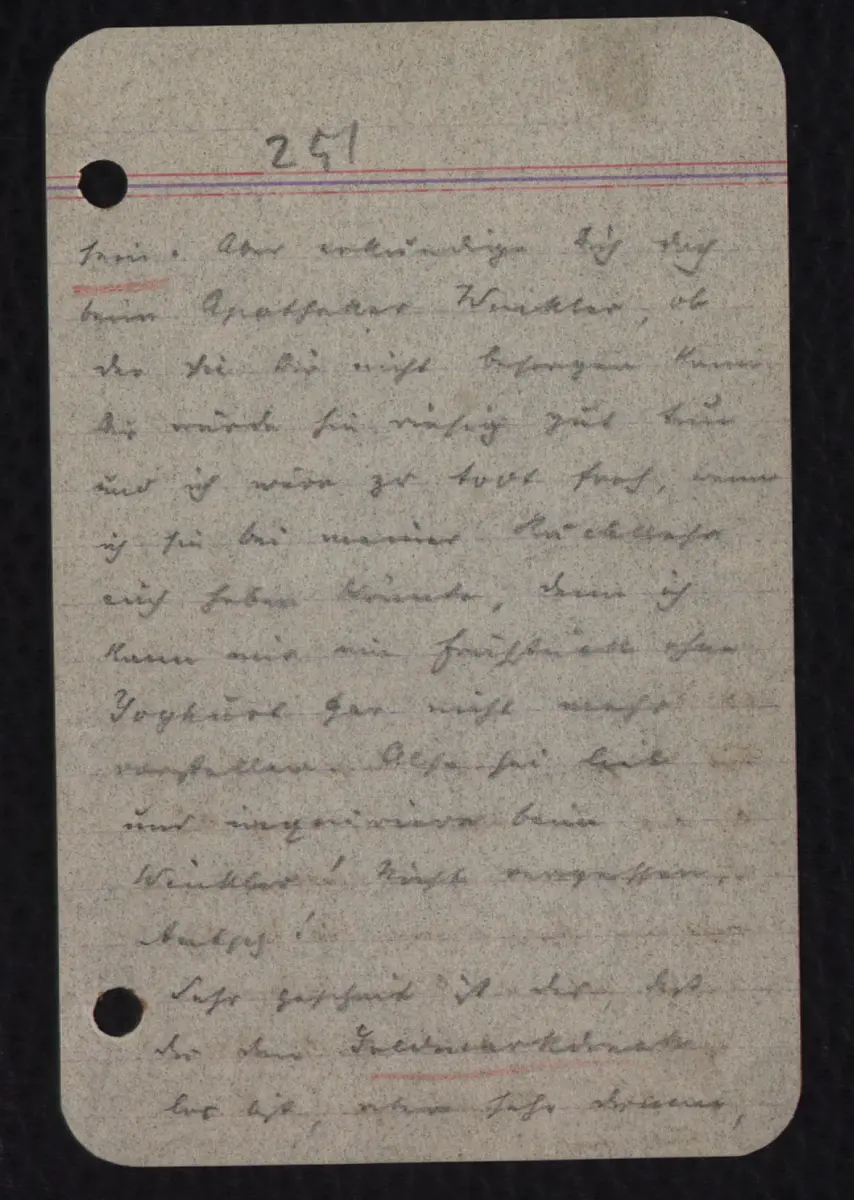 251
sein. Aber erkundige Dich doch
beim Apotheker Winkler, ob
der sie Dir nicht besorgen kann.
Dir würde sie riesig gut tun
und ich wäre zu tot froh, wenn
ich sie bei meiner Rückkehr
auch haben könnte, denn ich
kann mir ein Frühstück ohne
Yoghurt gar nicht mehr
vorstellen. Also sei lieb
und inquiriere beim
Winkler! Nicht vergessen,
Sehr gescheit ist das, dass
Du den
los bist, aber sehr dumm,